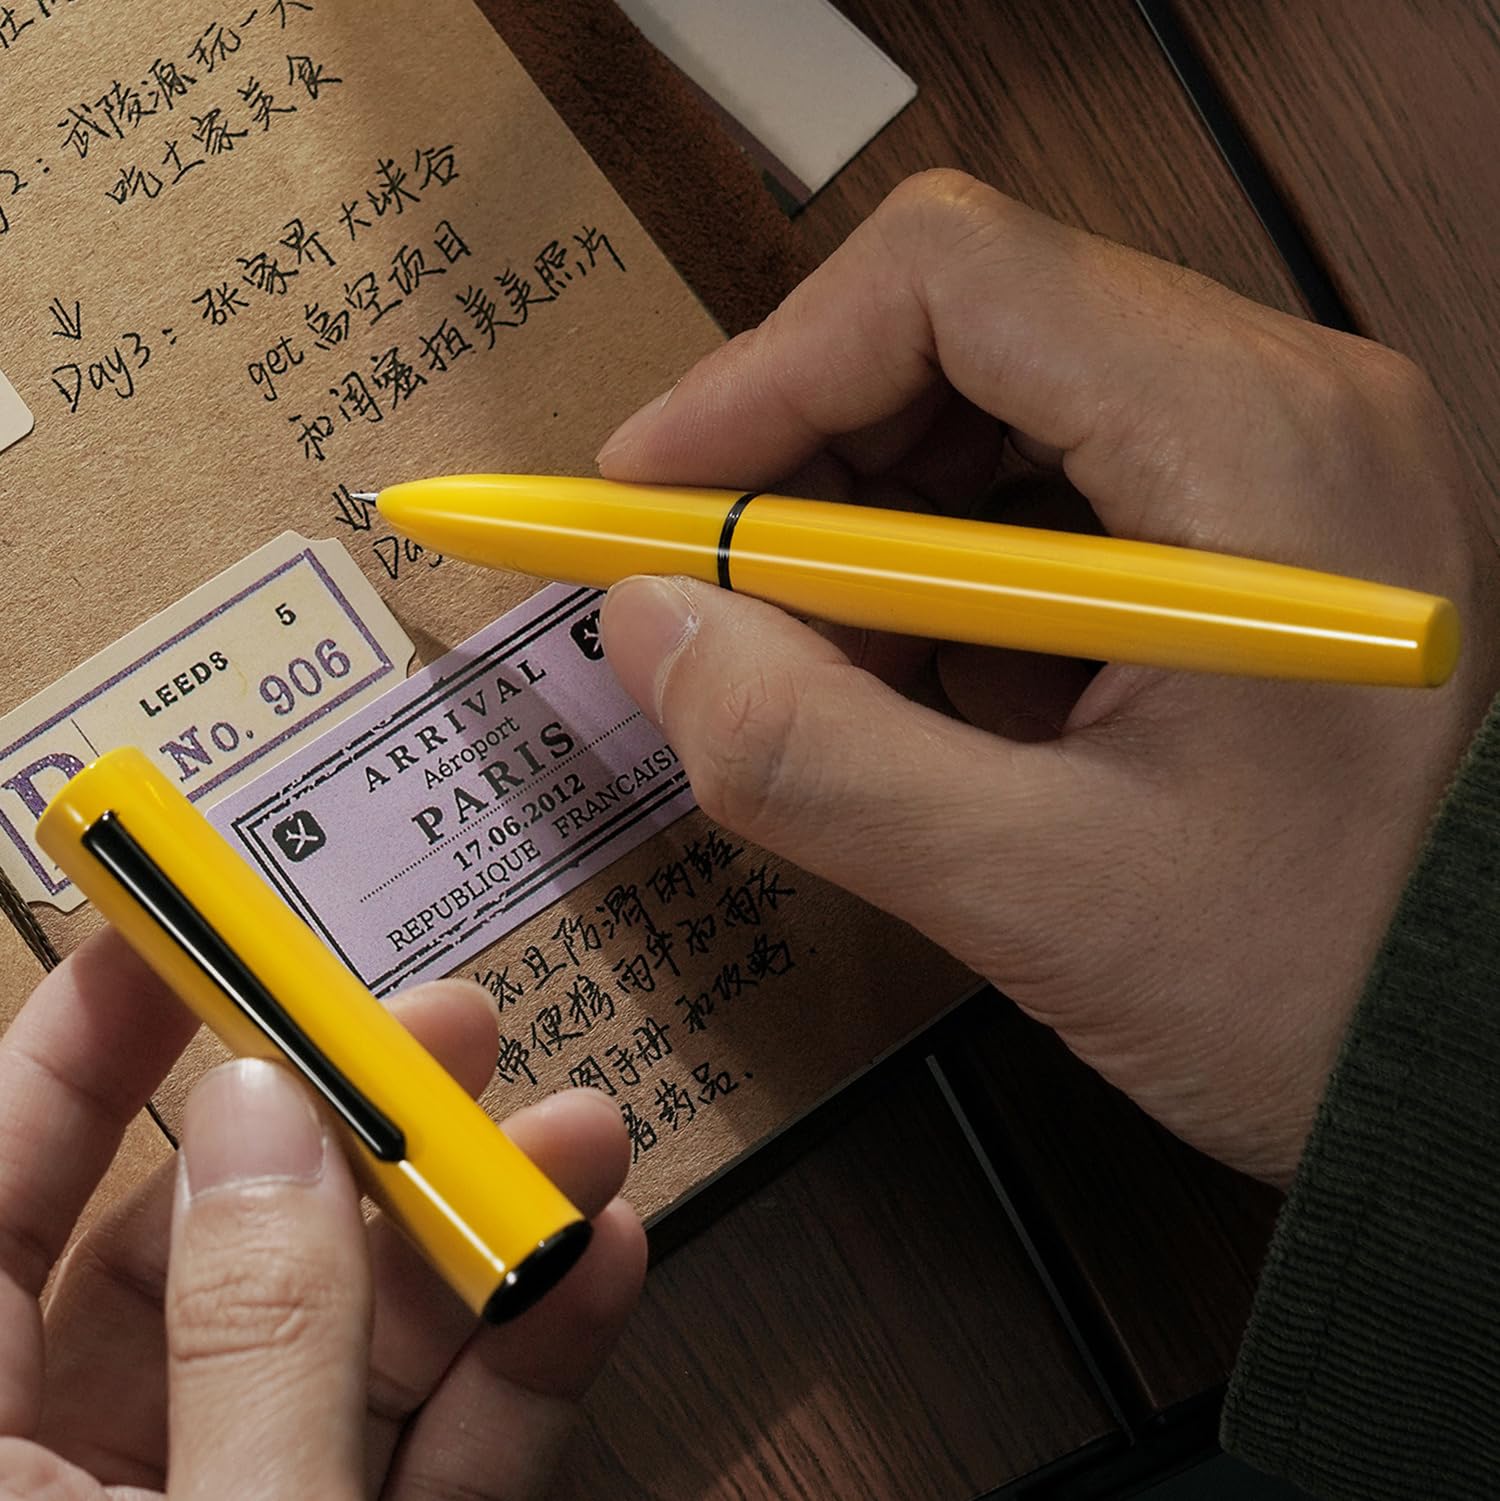 2：武陵源玩一大
吃土家美食
Day3：张家界大峡谷
get高空项目
和闺蜜拍美美照片
Day
LEEDS
5
No. 906
ARRIVAL
Aéroport
PARIS
17.06.2012
REPUBLIQUE FRANCAIS
底且防滑的鞋
带便携雨伞和雨衣
图手册和攻略.
暑药品.